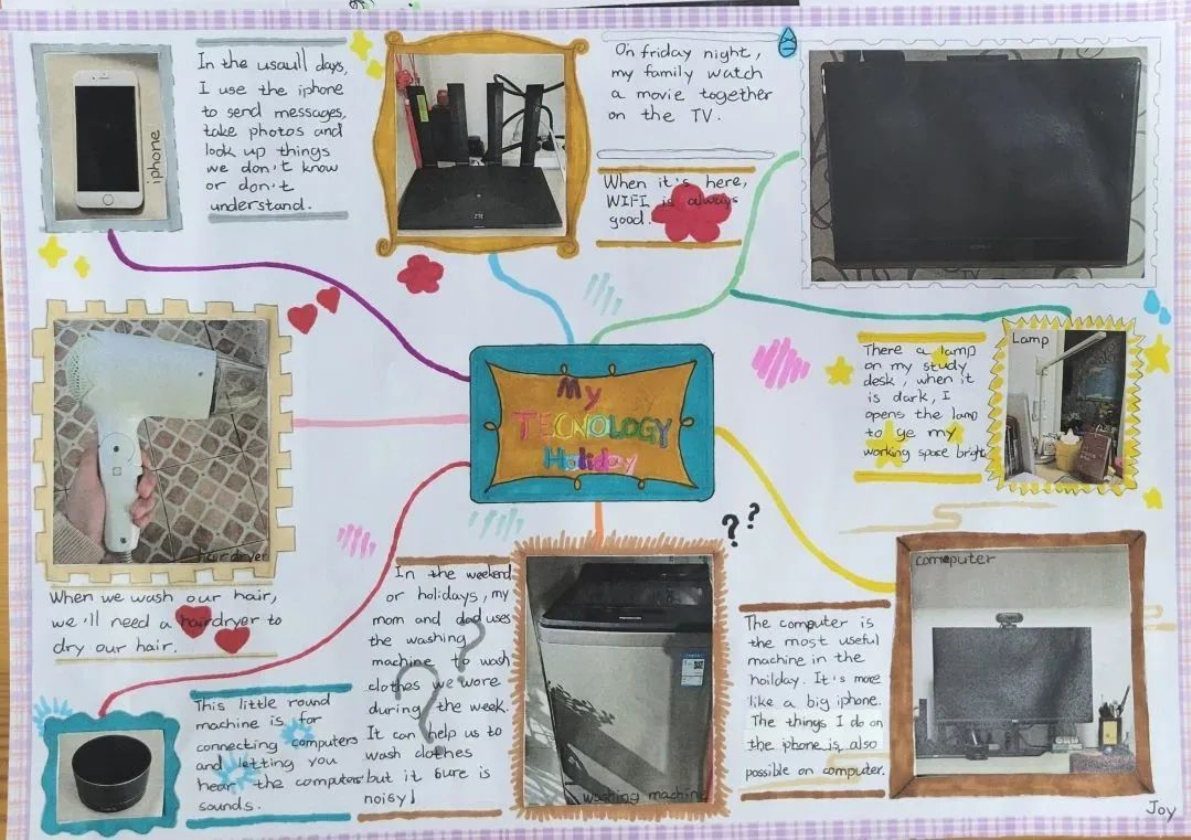 iphone
In the usaull days,
I use the iphone
to send messages,
take photos and
look up things
we don't know
or don't
understand.
ZTE
On friday night,
my family watch
a movie together
on the TV.
When it's here,
WIFI is always
good.
TV
My
TECNOLOGY
Holiday
There a lamp
on my study
desk, when it
is dark, I
opens the lamp
to ye my
working space bright
Lamp
hairdryer
When we wash our hair,
we'll need a hairdryer to
dry our hair.
This little round
machine is for
connecting computers
and letting you
hear the computers'
sounds.
In the weekend
or holidays, my
mom and dad uses
the washing
machine to wash
clothes we wore
during the week.
It can help us to
wash clothes
but it sure is
noisy!
??
?
?
washing machine
The computer is
the most useful
machine in the
hoilday. It's more
like a big iphone.
The things I do on
the iphone is also
possible on computer.
computer
Joy